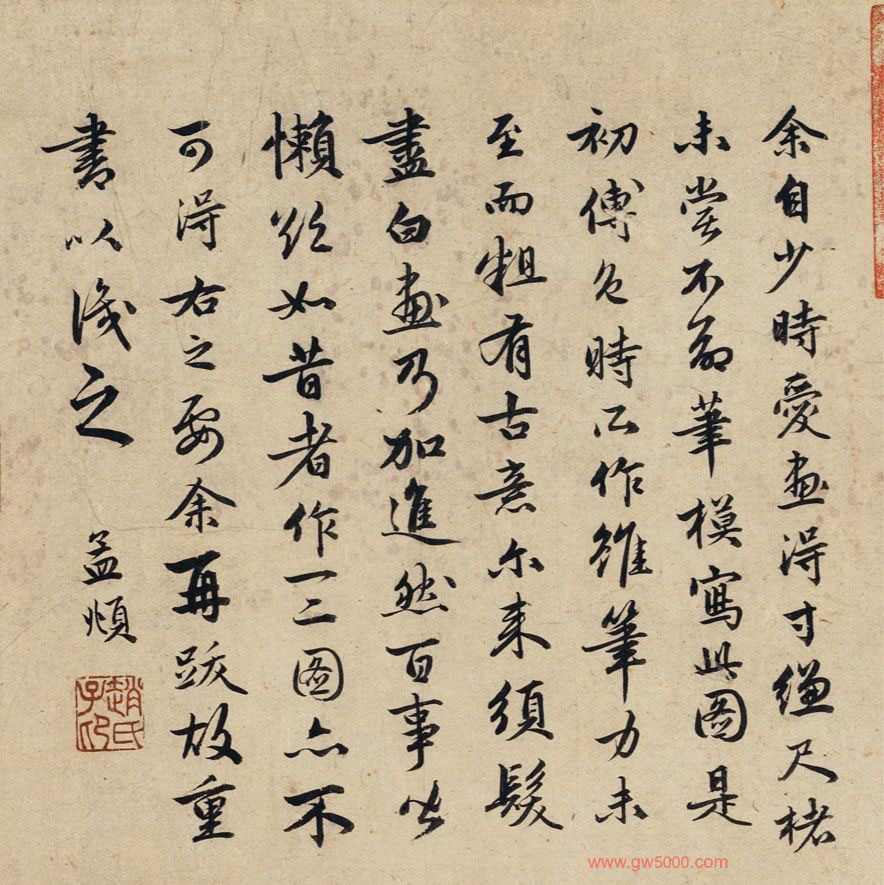 余自少時愛畫得寸縑尺楮
未嘗不命筆模寫此圖是
初傅色時所作雖筆力未
至而粗有古意尔来須髮
盡白畫乃加進然百事皆
懶欲如昔者作一二圖亦不
可得右之要余再跋故重
書以識之
孟頫
趙氏
子昂
www.gw5000.com